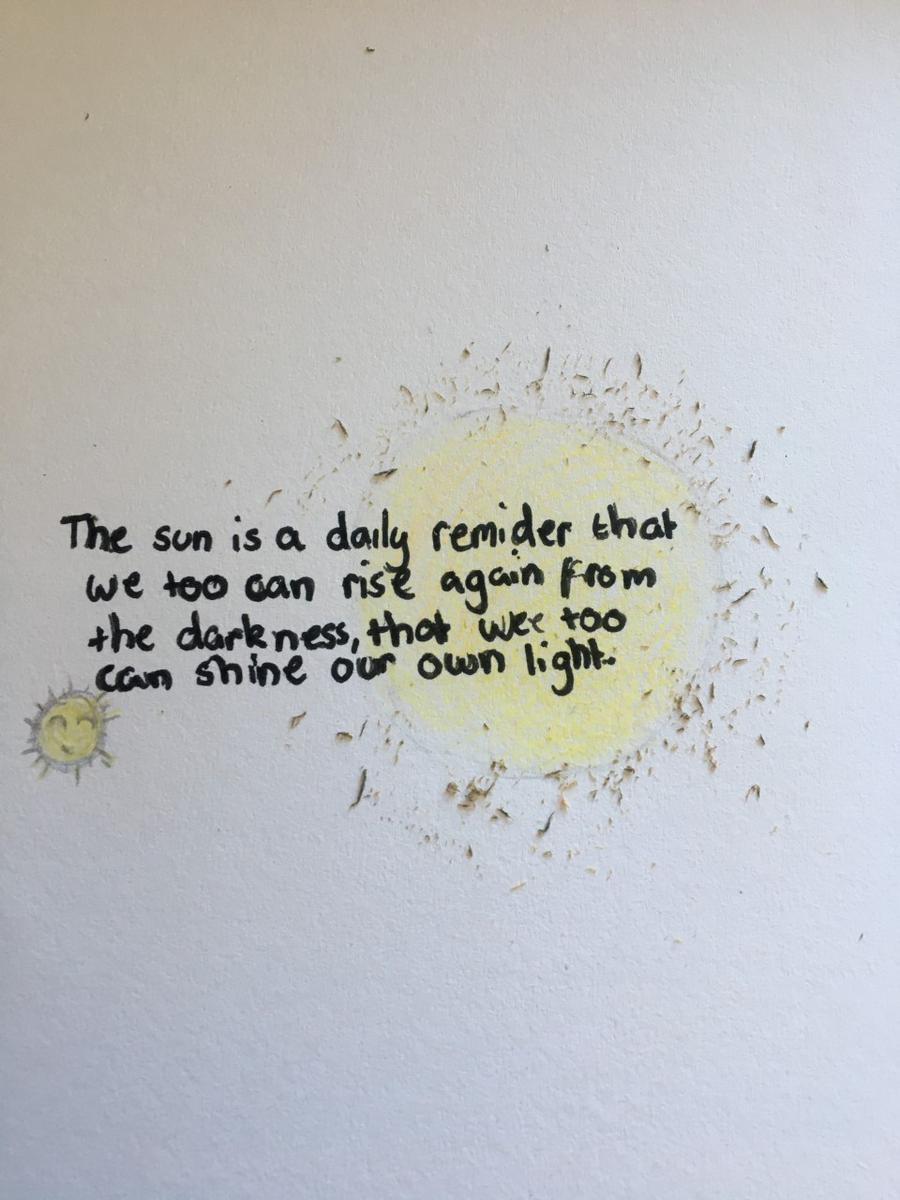 The sun is a daily remider that
we too can rise again from
the darkness, that wee too
can shine our own light.